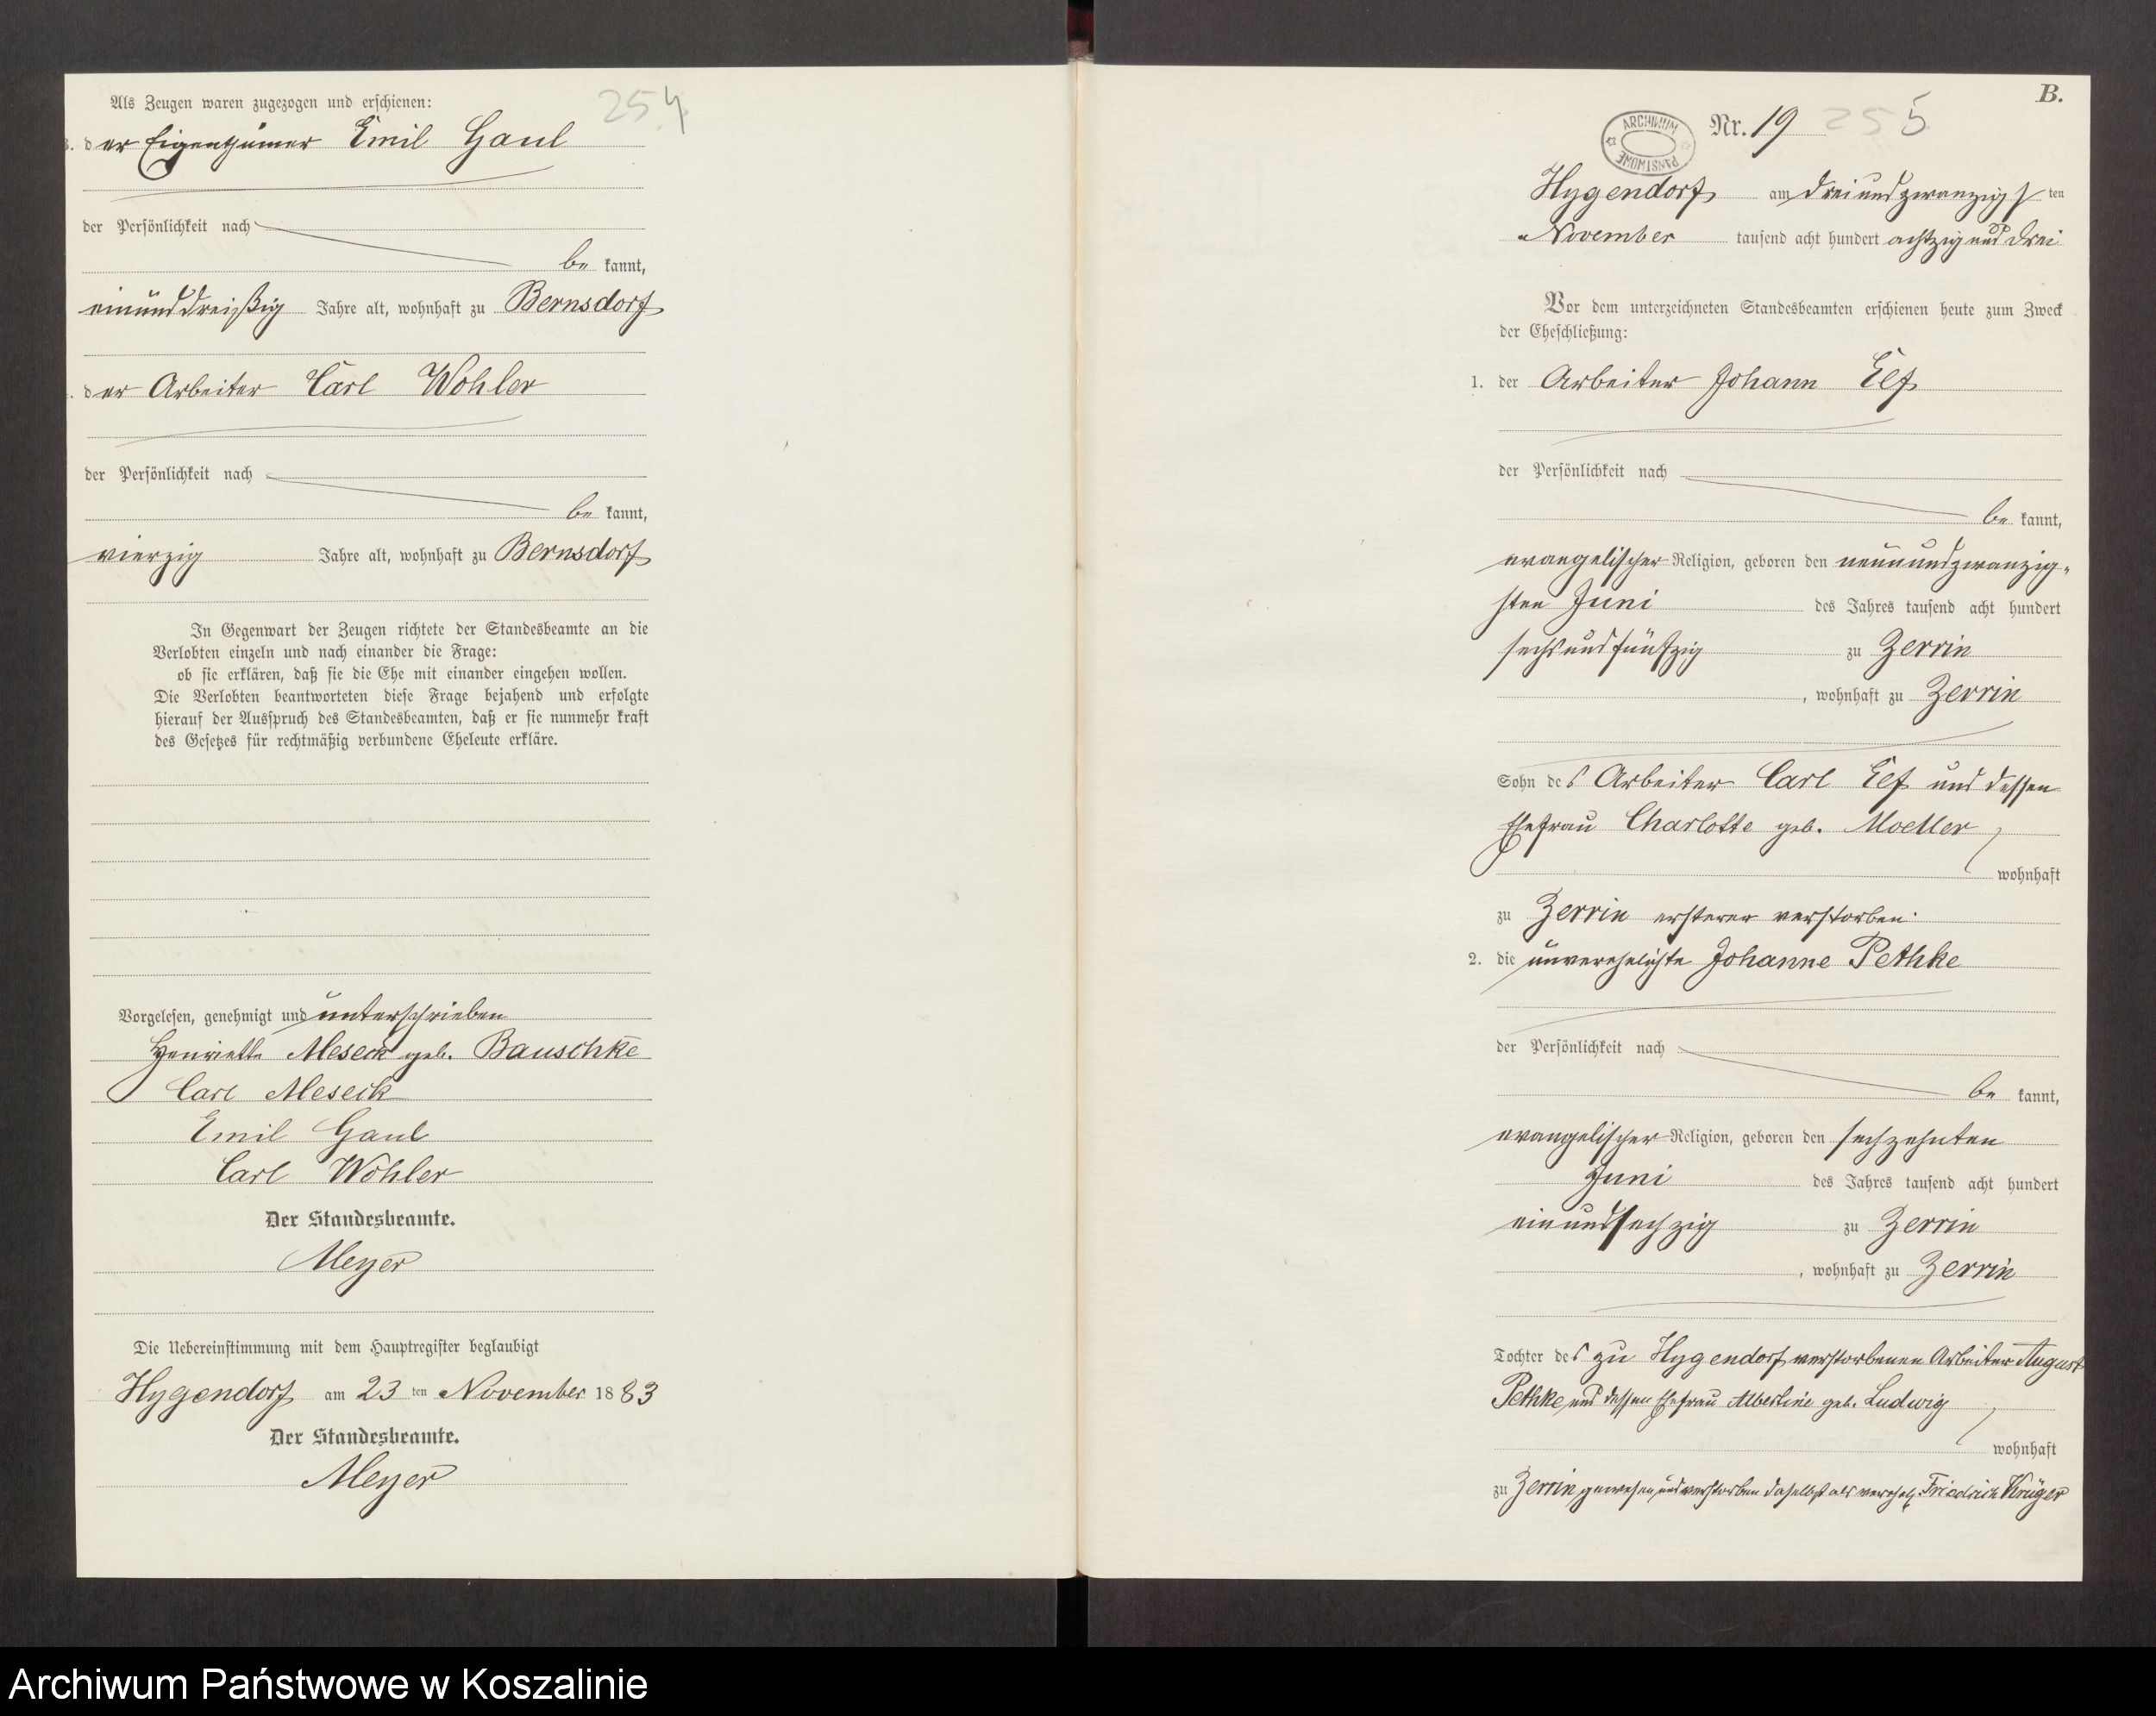 Als Zeugen waren zugezogen und erschienen:
254
3. der Eigenthümer Emil Gaul
der Persönlichkeit nach
be kannt,
einunddreißig Jahre alt, wohnhaft zu Bernsdorf
der Arbeiter Carl Wohler
der Persönlichkeit nach
be kannt,
vierzig Jahre alt, wohnhaft zu Bernsdorf
In Gegenwart der Zeugen richtete der Standesbeamte an die
Verlobten einzeln und nach einander die Frage:
ob sie erklären, daß sie die Ehe mit einander eingehen wollen.
Die Verlobten beantworteten diese Frage bejahend und erfolgte
hierauf der Ausspruch des Standesbeamten, daß er sie nunmehr kraft
des Gesetzes für rechtmäßig verbundene Eheleute erkläre.
Vorgelesen, genehmigt und unterschrieben
Henriette Meseck geb. Bauschke
Carl Meseck
Emil Gaul
Carl Wohler
Der Standesbeamte.
Meyer
Die Uebereinstimmung mit dem Hauptregister beglaubigt
Hygendorf am 23 ten November 1883
Der Standesbeamte.
Meyer
B.
ARCHIWUM PAŃSTWOWE
Nr. 19 255
Hygendorf am dreiundzwanzigsten
November tausend acht hundert achtzig und drei
Vor dem unterzeichneten Standesbeamten erschienen heute zum Zweck
der Eheschließung:
1. der Arbeiter Johann Elf
der Persönlichkeit nach
be kannt,
evangelischer Religion, geboren den neunundzwanzig-
sten Juni des Jahres tausend acht hundert
sechsundfünfzig zu Zerrin
, wohnhaft zu Zerrin
Sohn des Arbeiter Carl Elf und dessen
Ehefrau Charlotte geb. Moeller
wohnhaft
zu Zerrin ersterer verstorben.
2. die unverehelichte Johanne Pethke
der Persönlichkeit nach
be kannt,
evangelischer Religion, geboren den sechzehnten
Juni des Jahres tausend acht hundert
einundsechzig zu Zerrin
, wohnhaft zu Zerrin
Tochter des zu Hygendorf verstorbenen Arbeiter August
Pethke und dessen Ehefrau Albertine geb. Ludwig
wohnhaft
zu Zerrin gewesen und verstorben daselbst als verehel. Friedrich Krüger
Archiwum Państwowe w Koszalinie